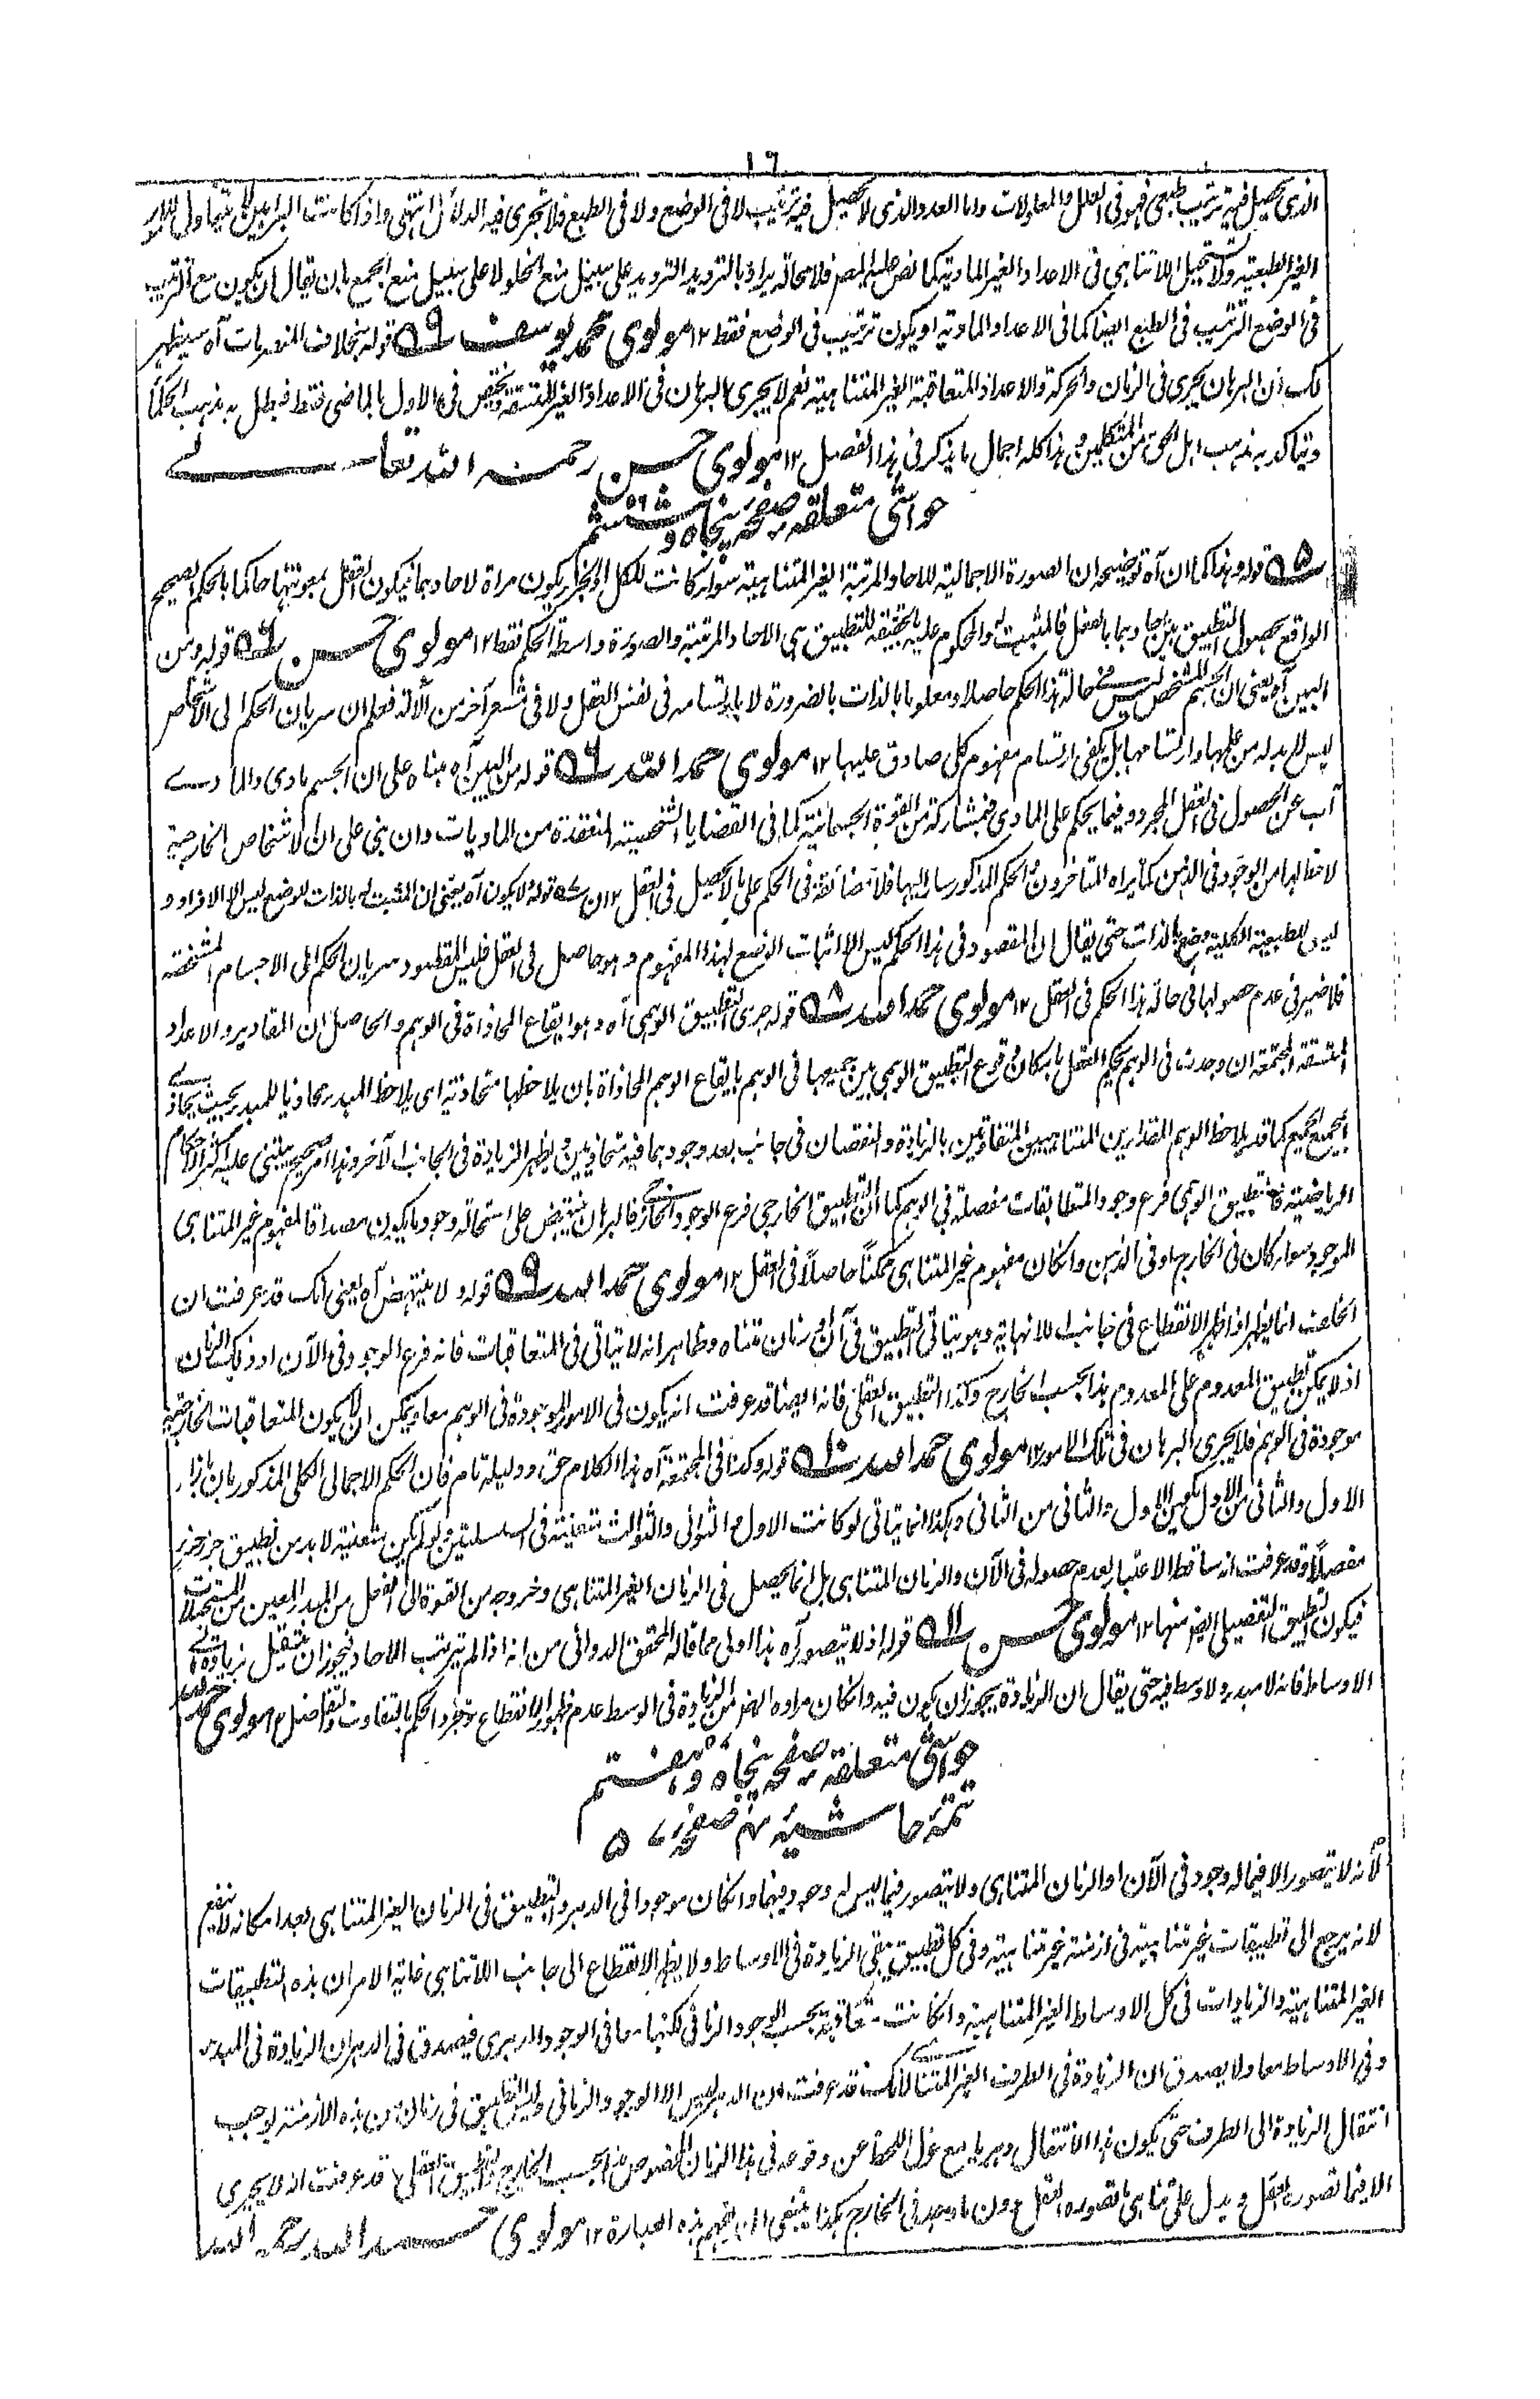 ١٦
الذى يحصل فيه ترتيب طبعى فهو فى العلل والمعلولات واما العدد الذى لا يحصل فيه ترتيب لا فى الوضع ولا فى الطبع فلا تجرى فيه الدلائل انتهى واذا كانت البراهين لا يتناول للامور
الغير الطبعية ولا تستحيل اللاتناهى فى الاعداد الغير المادية كما نص عليه المصنف فلا محالة يراد بالترديد الترديد على سبيل منع الخلو لا على سبيل منع الجمع بان يقال ان يكون مع الترتيب
فى الوضع الترتيب فى الطبع ايضا كما فى الاعداد المادية او يكون ترتيب فى الوضع فقط ١٢ مولوى محمد يوسف ٥٩ قوله بخلاف آه سيظهر
لك ان البرهان يجرى فى الزمان والحركة والاعداد المتعاقبة الغير المتناهية نعم لا يجرى البرهان فى الاعداد الغير المتسقة فى الاول بالماضى فقط فبطل به مذهب الحكماء
وتاكد به مذهب اهل الحق من المتكلمين هذا كله اجمال ما يذكر فى هذا الفصل ١٢ مولوى حسن رحمه الله تعالے
حواشى متعلقه صفحه پنجاه و ششم ٥٦
٥ قوله وهذا كما ان آه توضيحه ان الصورة الاجمالية للاحاد المرتبة الغير المتناهية سواء كانت للكل او لجزء يكون مراة لاحادهما فيكون العقل بمعونتها حاكما بالحكم الصحيح
الواقع بحصول التطبيق بين احادهما بالفعل فالمثبت له والمحكوم عليه بالحقيقة للتطبيق هى الاحاد المرتبة والصورة واسطة الحكم فقط ١٢ مولوى حسن ٥٦ قوله ومن
البين آه يعنى ان الجسم المشخص ليس فى حالة هذا الحكم حاصلا ومعلوما بالذات بالضرورة لا بارتسامه فى نفس العقل ولا فى مشعر آخر من آلاته فعلم ان سريان الحكم الى الاشخاص
ليس لا بد له من علمها وارتسامها بل يكفى ارتسام مفهوم كلى صادق عليها ١٢ مولوى حمد الله ٥٦ قوله من البين آه بناه على ان الجسم مادى والمادے
آب عن الحصول فى العقل المجرد وفيما يحكم على المادى فبمشاركة من القوة الجسمانية كما فى القضايا الشخصية المنعقدة من الماديات وان بنى على ان الاشخاص الخارجية
لا حظ لها من الوجود فى الذهن كما يراه المتاخرون والحكم المذكور سار اليها فلا مضائقة فى الحكم على ما لا يحصل فى العقل ١٢ ان ٥٧ قوله لا يكون آه يعنى ان المثبت له بالذات للوضع ليس الا الافراد و
ليس للطبيعة الكلية وضع بالذات حتى يقال ان المقصود فى هذا الحكم ليس الا اثبات الوضع لهذا المفهوم وهو حاصل فى العقل فليس المقصود سريان الحكم الى الاجسام المشخصة
فلا ضير فى عدم حصولها فى حالة هذا الحكم فى العقل ١٢ مولوى حمد الله ٥٨ قوله جرى التطبيق الوهمى آه وهو ايقاع المحاذاة فى الوهم والحاصل ان المقادير والاعداد
المتسقة المجتمعة ان وجدت فى الوهم يحكم العقل بامكان وقوع التطبيق الوهمى بين جميعها فى الوهم بايقاع الوهم المحاذاة بان يلاحظها متحاذية اى يلاحظ المبدء محاذيا للمبدء بحيث يحاذے
الجميع الجميع كما قد يلاحظ الوهم المقدارين المتناهيين المتفاوتين بالزيادة والنقصان فى جانب بعد وجودهما فيه متحاذيين ويظهر الزيادة فى الجانب الآخر وهذا امر صحيح يبتنى عليه اكثر الاحكام
الرياضية فالتطبيق الوهمى فرع وجود المتطابقات مفصلة فى الوهم كما ان التطبيق الخارجى فرع الوجود الخارجى فالبرهان ينتهض على استحالة وجود ما يكون مصداقا لمفهوم غير المتناهى
الموجود سواء كان فى الخارج او فى الذهن وان كان مفهوم غير المتناهى ممكناً حاصلاً فى العقل ١٢ مولوى حمد الله ٥٩ قوله ولا ينتهض آه يعنى انك قد عرفت ان
الخلف انما يظهر اذا ظهر الانقطاع فى جانب اللانهاية وهو يتاتى التطبيق فى آن او زمان متناه وظاهر انه لا يتاتى فى المتعاقبات فانه فرع الوجود فى الآن او ذلك الزمان
اذ لا يمكن تطبيق المعدوم على المعدوم هذا بحسب الخارج وكذا التطبيق العقلى فانه ايضا قد عرفت انه يكون فى الامور الموجودة فى الوهم معا ويمكن ان لا يكون المتعاقبات الخارجية
موجودة فى الوهم فلا يجرى البرهان فى تلك الامور ١٢ مولوى حمد الله ٥١٠ قوله وكذا فى المجتمعة آه هذا الكلام حق ودليله تام فان الحكم الاجمالى الكلى المذكور بان بازاء
الاول والثانى من الاول الاول والثانى من الثانى وهكذا انما يتاتى لو كانت الاول والثوانى والثوالث متعينة فى السلسلتين ولو لم يكن متعينة لا بد من تطبيق جزء جزء
مفصلاً وقد عرفت انه ساقط الاعتبار لعدم حصوله فى الآن والزمان المتناهى بل انما يحصل فى الزمان الغير المتناهى وخروجه من القوة الى الفعل من المبدء المعين من المستحيلات
فيكون التطبيق التفصيلى ايضا منها ١٢ مولوى حسن ٥١١ قوله اذ لا يتصور آه هذا اولى مما قاله المحقق الدوانى من انه اذا لم يترتب الاحاد فيجوز ان ينتقل زيادة الى
الاوساط فانه لا مبدء ولا وسط فيه حتى يقال ان الزيادة يجوز ان يكون فيه وان كان مراده الزيادة فى الوسط عدم ظهور الانقطاع الحكم بالتفاوت والتفاضل ١٢ مولوى حمد الله
حواشى متعلقه صفحه پنجاه و هفتم ٥٧
تتمه حاشيه نهم صفحه ٥٧
لانه لا يتصور الا فيما له وجود فى الآن او الزمان المتناهى ولا يتصور فيما ليس له وجود فيهما وان كان موجودا فى الدهر والتطبيق فى الزمان الغير المتناهى بعد امكانه لا ينفع
لانه يرجع الى تطبيقات غير متناهية فى ازمنة غير متناهية وفى كل تطبيق يبقى الزيادة فى الاوساط ولا يظهر الانقطاع الى جانب اللاتناهى غاية الامر ان هذه التطبيقات
الغير المتناهية والزيادات فى كل الاوساط الغير المتناهية وان كانت متعاقبة بحسب الوجود الزمانى لكنها معا فى الوجود الدهرى فيصدق فى الدهر ان الزيادة فى المبدء
وفى الاوساط معا ولا يصدق ان الزيادة فى الطرف الغير المتناهى لانك قد عرفت ان الدهر ليس الا الوجود الزمانى وليس التطبيق فى زمان من هذه الازمنة يوجب
انتقال الزيادة الى الطرف حتى يكون هذا الانتقال دهريا مع عزل اللحظ عن وقوعه فى هذا الزمان المخصوص هذا بحسب الخارج والتطبيق العقلى قد عرفت انه لا يجرى
الا فيما تصوره العقل ويدل على تناهى ما تصوره العقل دون ما وجد فى الخارج هكذا ينبغى ان يفهم هذه العبارة ١٢ مولوى حمد الله رحمه الله